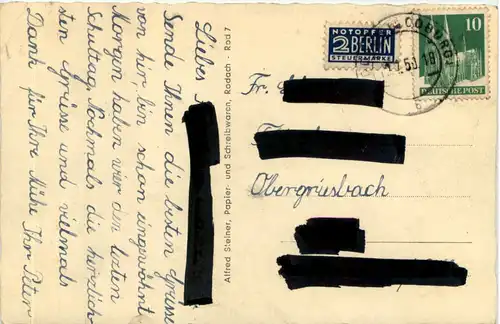 Liebes
Sende Ihnen die besten Grüsse
von hier, bin schon eingewöhnt
Morgen haben wir den letzten
Schultag. Nochmals die herzlich
sten Grüsse und vielmals
Dank für Ihre Mühe Ihr Peter
Alfred Steiner, Papier- und Schreibwaren, Rodach - Rod 7
NOTOPFER
2 BERLIN
STEUERMARKE
COBURG
10
DEUTSCHE POST
Fr.
Obergriesbach